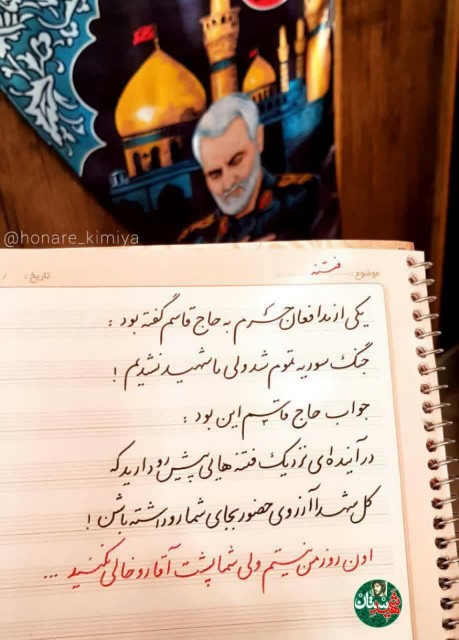 @honare_kimiya
موضوع: فتنه
تاریخ: / /
یکی از مدافعان حرم به حاج قاسم گفته بود :
جنگ سوریه تموم شد ولی ما شهید نشدیم !
جواب حاج قاسم این بود :
در آینده‌ای نزدیک فتنه هایی پیش رو دارید که
کل شهدا آرزوی حضور بجای شما رو داشته باشن !
اون روز من نیستم ولی شما پشت آقا رو خالی نکنید ...